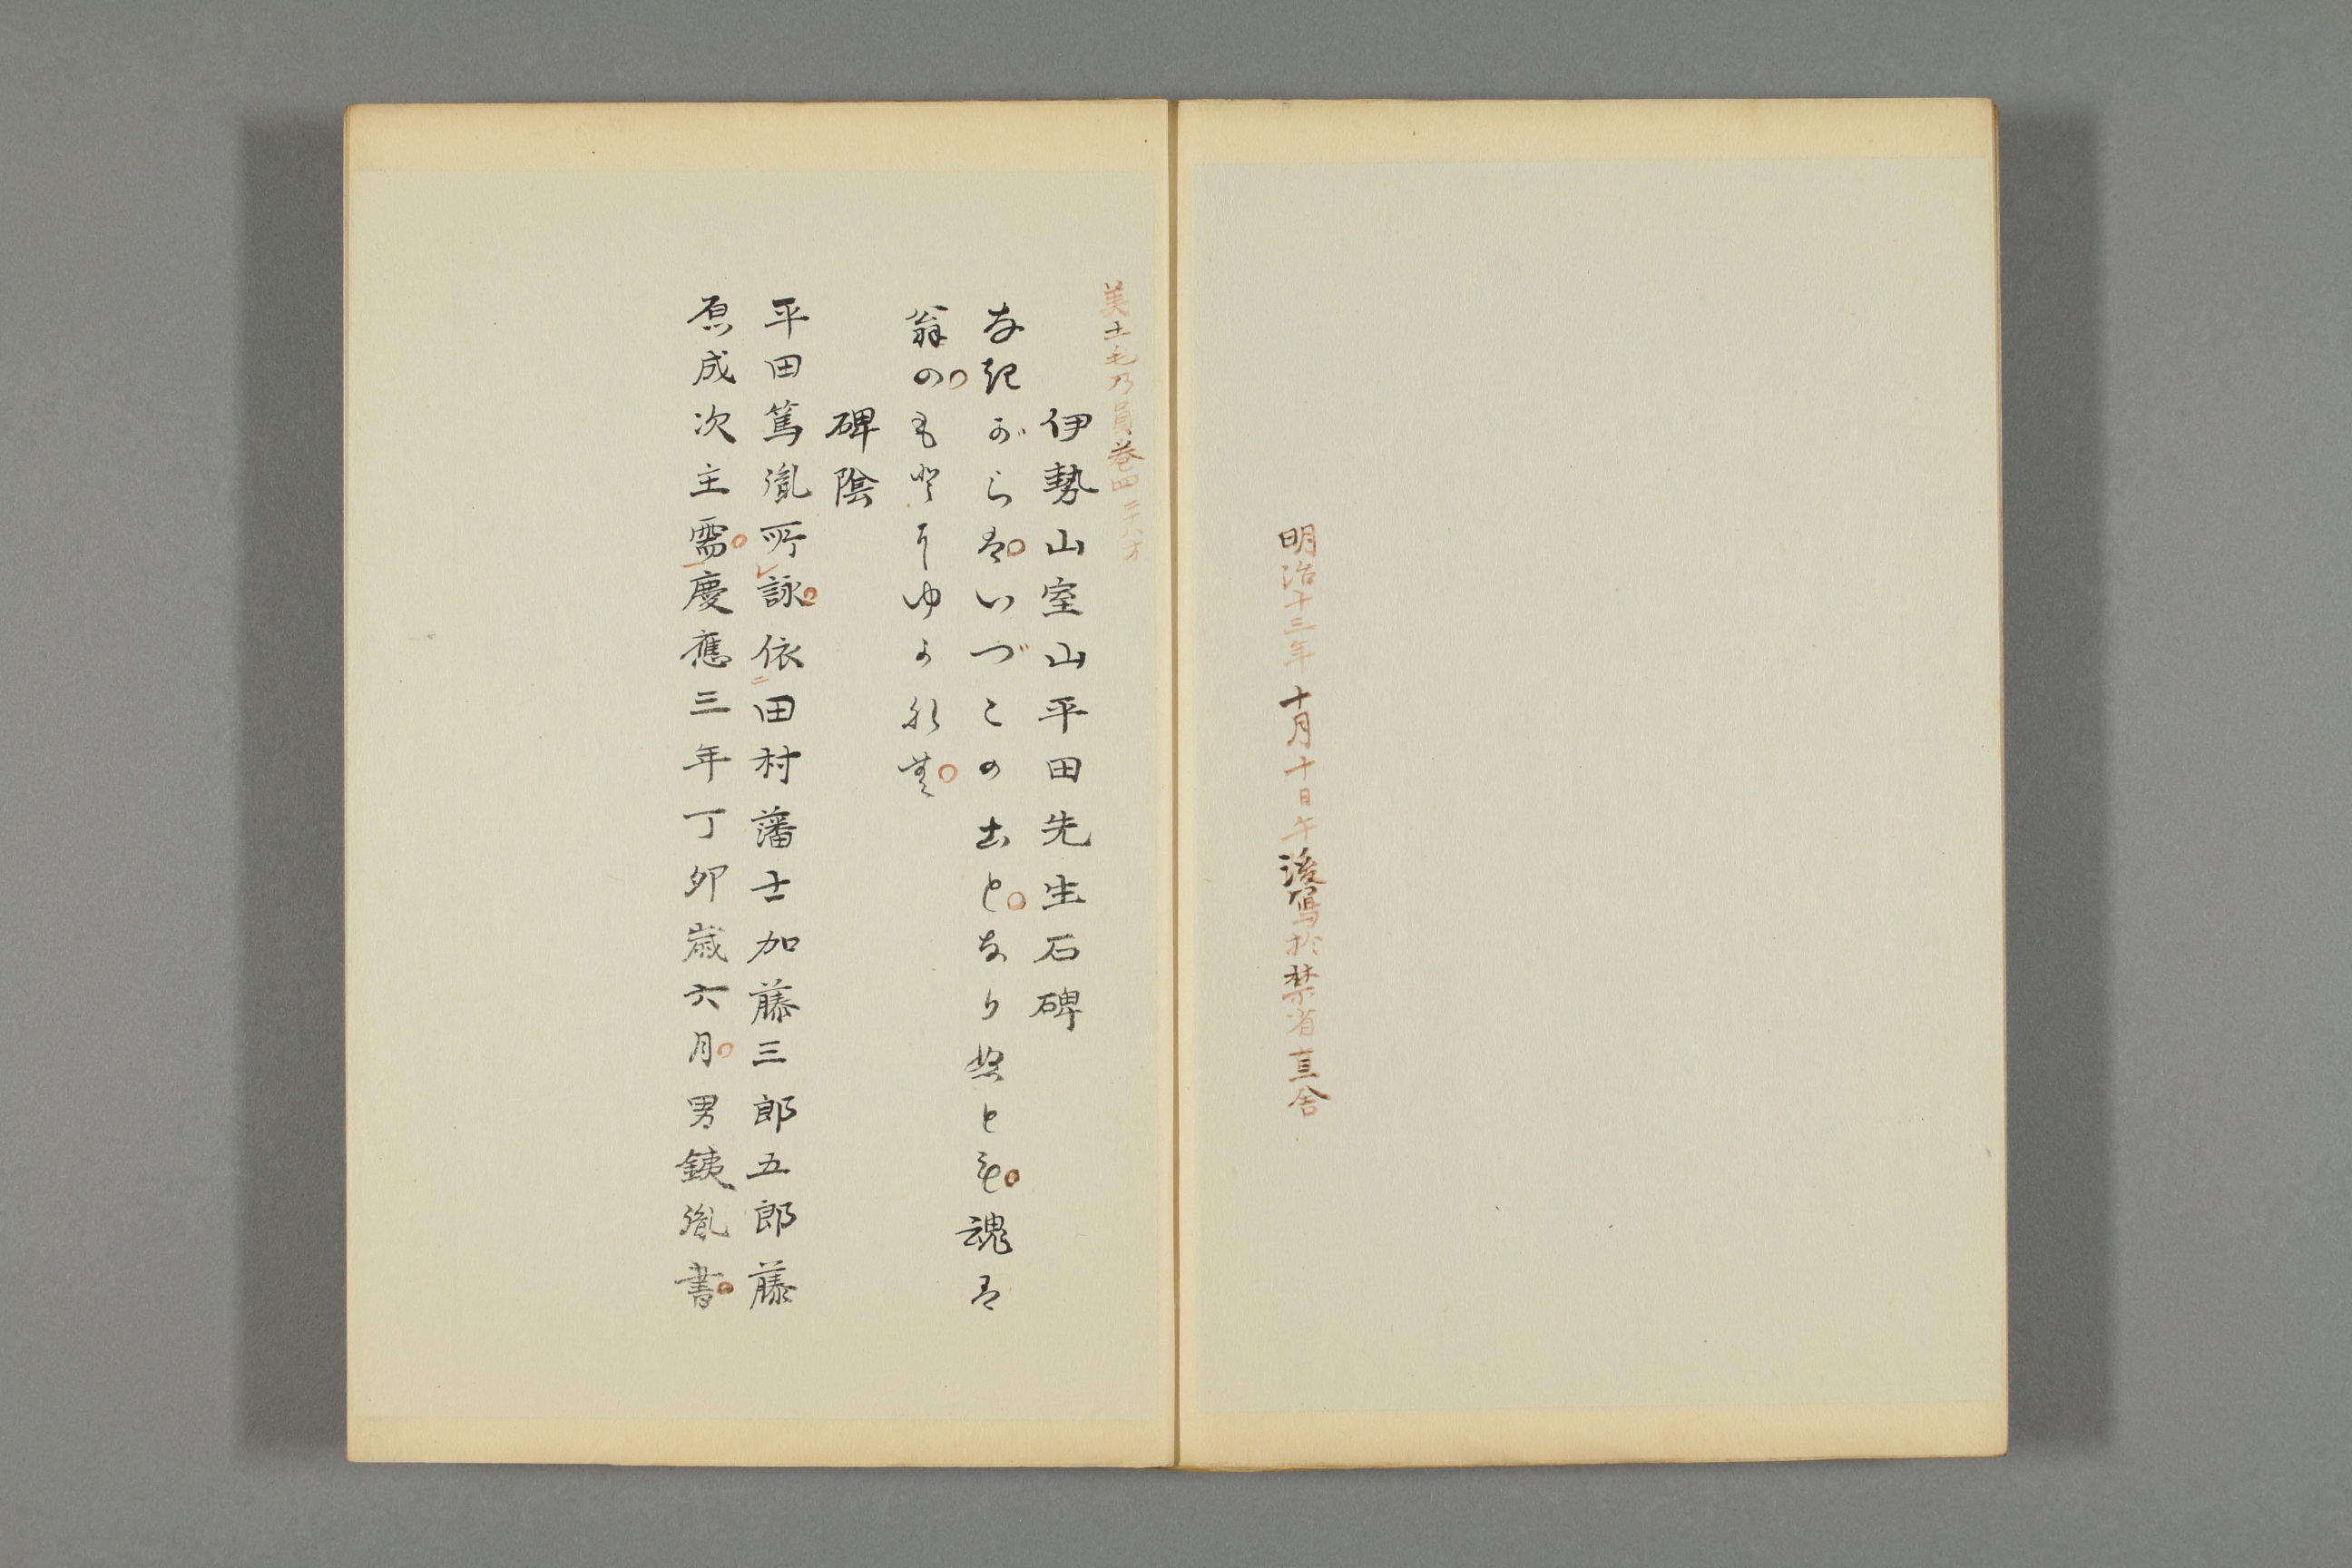 明治十三年十月十日午後寫於禁省直舎
美土毛乃員巻四
伊勢山室山平田先生石碑
なきがらは。いづこの土と。なりぬとも。魂は
翁の。もとにゆかなむ。
碑陰
平田篤胤所レ詠。依二田村藩士加藤三郎五郎藤
原成次主需一。慶應三年丁卯歳六月。男銕胤書。